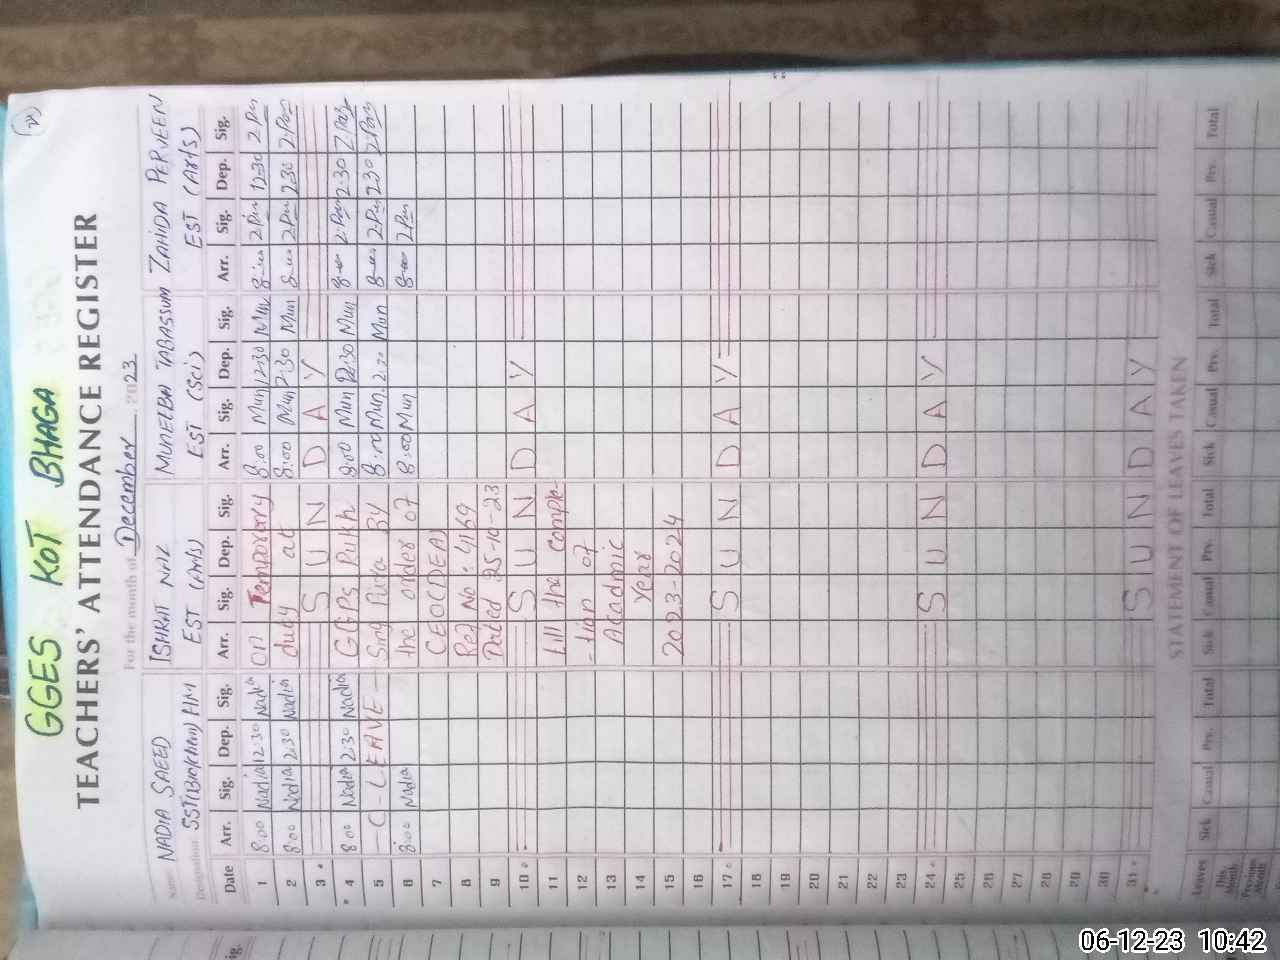 GGES KOT BHAGA
TEACHERS' ATTENDANCE REGISTER
For the month of December 2023
Name NADIA SAEED ISHRAT NAZ MUNEEBA TABASSUM ZAHIDA PERVEEN
Designation EST (Arts) EST (Sci) EST (Arts)
Date Arr. Sig. Dep. Sig. Arr. Sig. Dep. Sig. Arr. Sig. Dep. Sig. Arr. Sig. Dep. Sig.
1 8:00 Nadia 12:30 Nadia on Temporary 8:00 Mun 12:30 Mun 8:00 12:30
2 8:00 Nadia 2:30 Nadia duty at 8:00 Mun 2:30 Mun 8:00 2:30
3 S U N D A Y
4 8:00 Nadia 2:30 Nadia GGPS Pukh 8:00 Mun 2:30 Mun 8:00 2:30
5 - C - LEAVE - Sing Pura By 8:00 Mun 2:30 Mun 8:00 2:30
6 8:00 Nadia the order of 8:00 Mun 8:00
7 CEO(DEA)
8 Ref No: 4169
9 Dated 25-10-23
10 S U N D A Y
11 till the comple-
12 -tion of
13 Acadmic
14 Year
15 2023-2024
16
17 S U N D A Y
18
19
20
21
22
23
24 S U N D A Y
25
26
27
28
29
30
31 S U N D A Y
STATEMENT OF LEAVES TAKEN
Leaves Sick Casual Prv. Total Sick Casual Prv. Total Sick Casual Prv. Total Sick Casual Prv. Total
This Month
Previous Month
Sig.
06-12-23 10:42